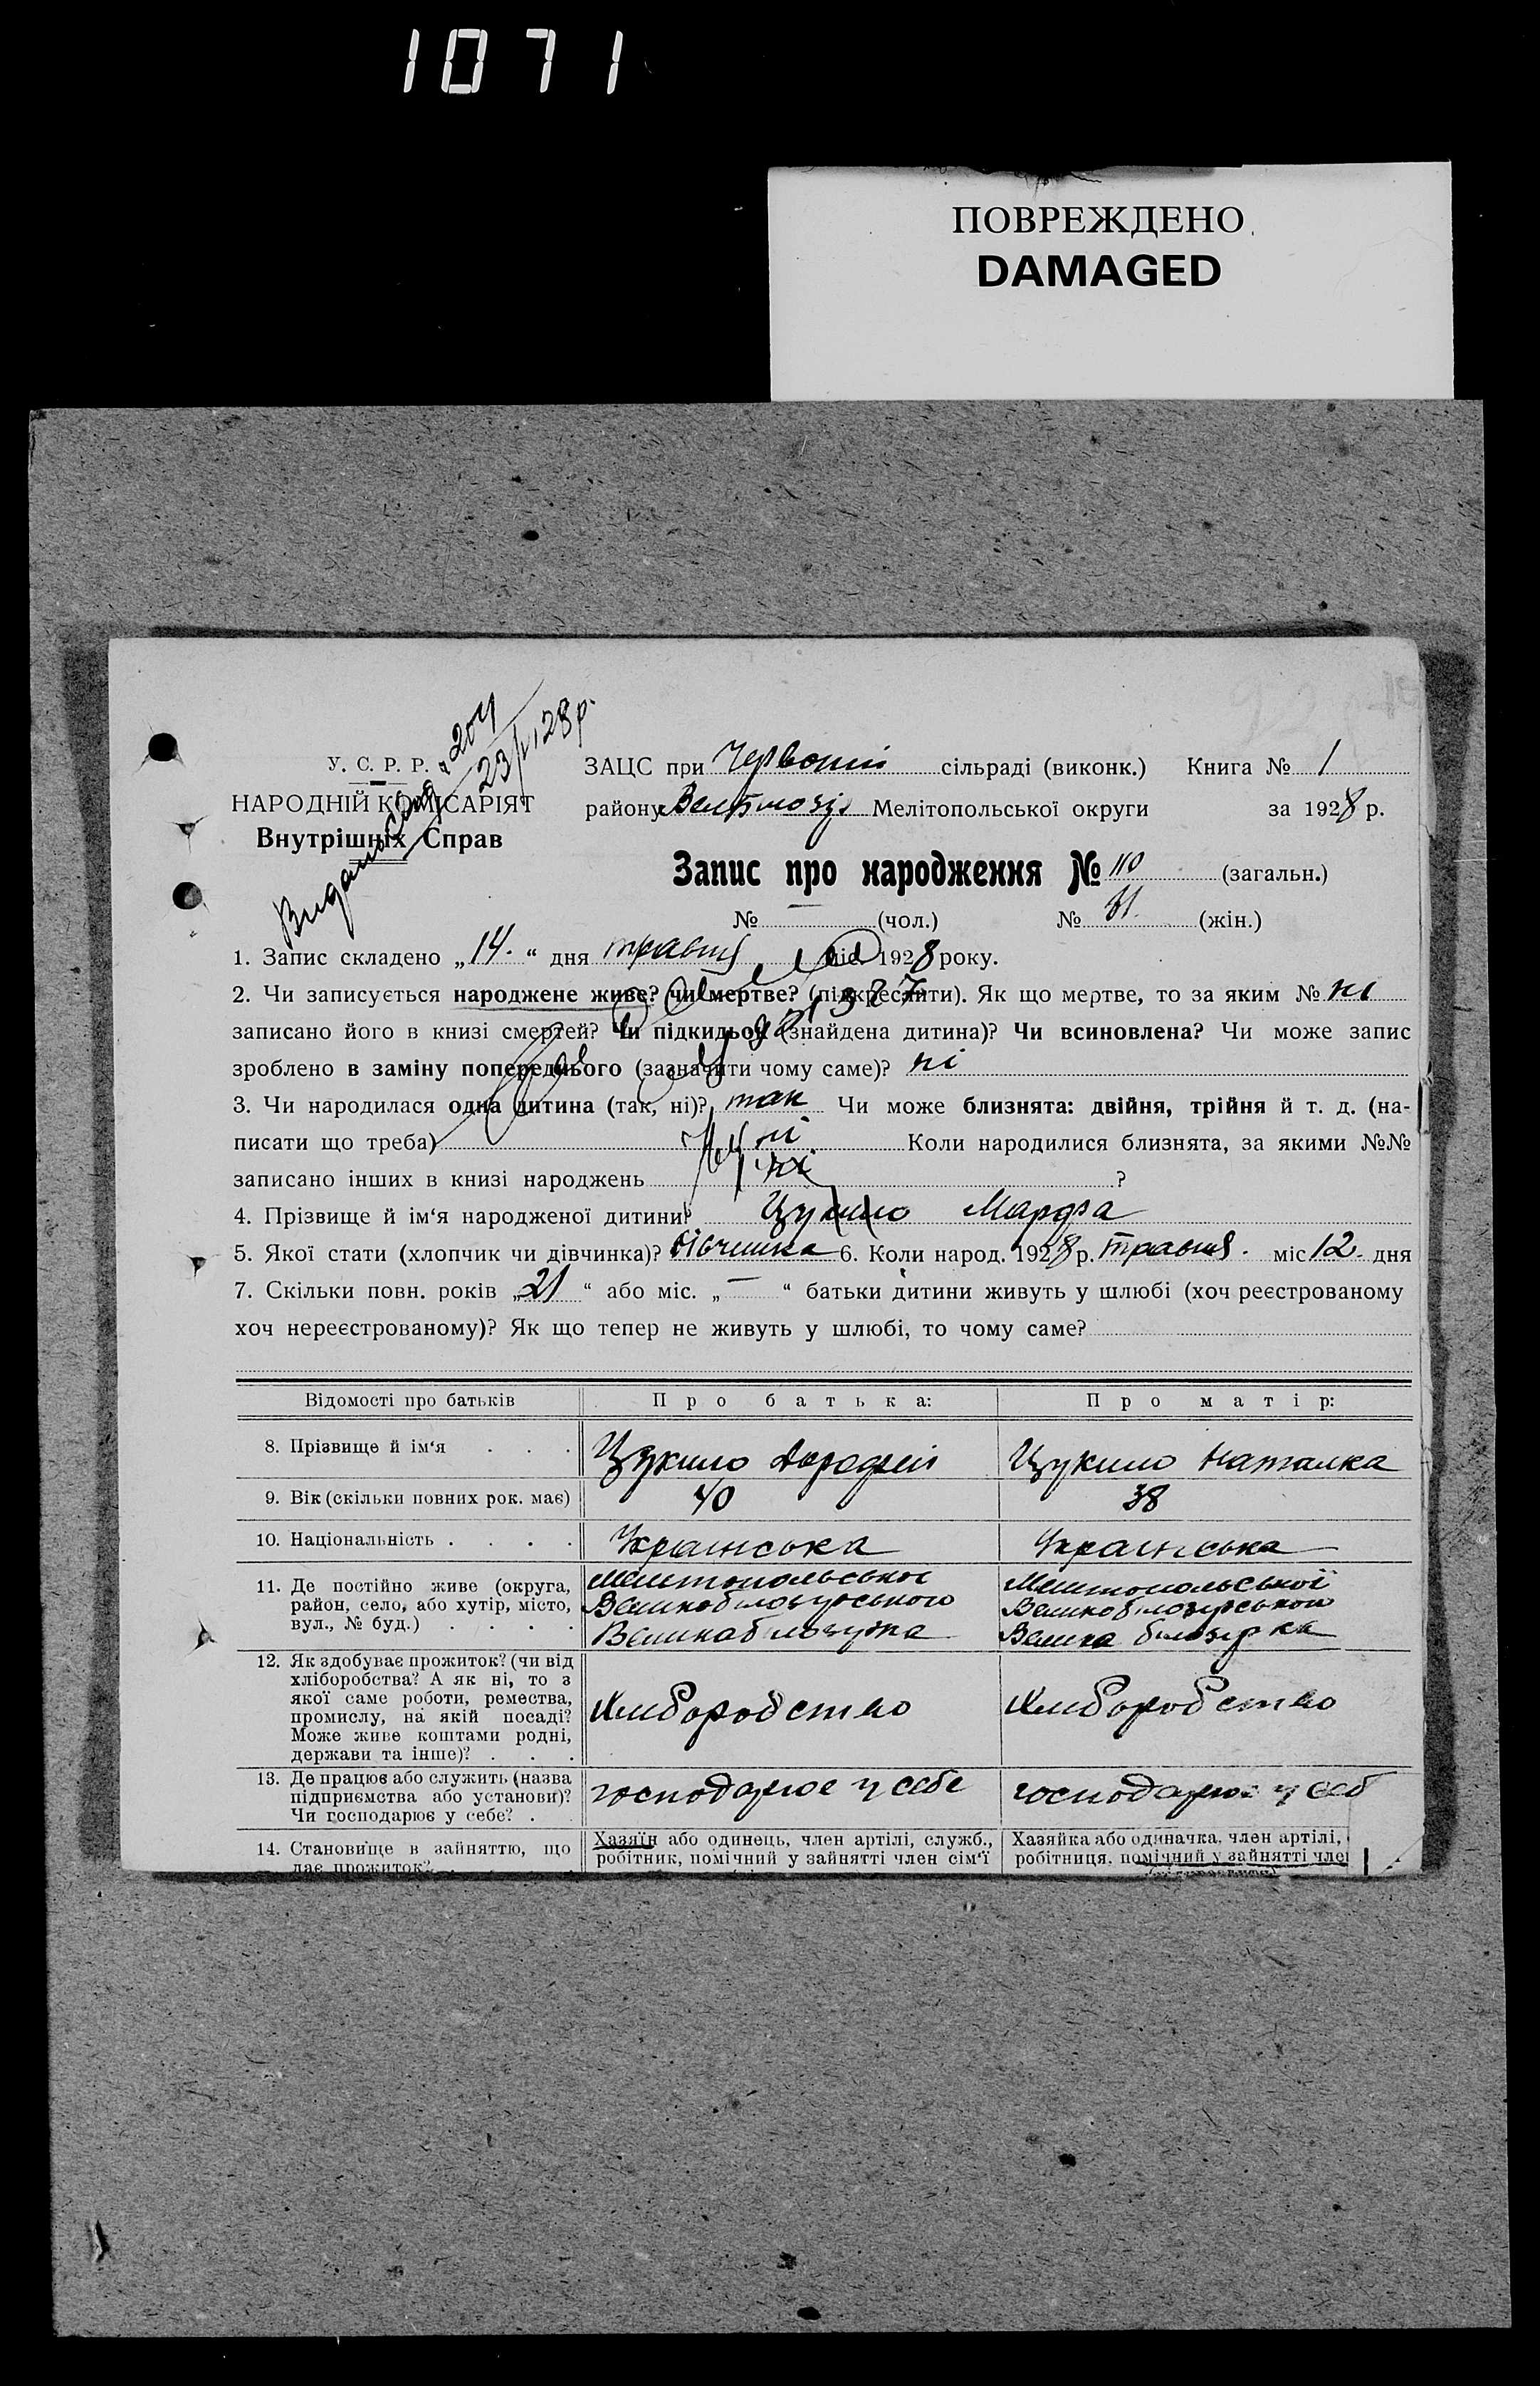 1071
ПОВРЕЖДЕНО
DAMAGED
У. С. Р. Р.
НАРОДНІЙ КОМІСАРІЯТ
Внутрішніх Справ
Видано 204
23/V 28 р.
ЗАЦС при Червоній сільраді (виконк.) Книга № 1
району Мелітопольської округи за 1928 р.
Запис про народження № 110 (загальн.)
№ — (чол.) № (жін.)
1. Запис складено „14.“ дня травня міс. 1928 року.
2. Чи записується народжене живе? чи мертве? (підкреслити). Як що мертве, то за яким № ні
записано його в книзі смертей? Чи підкидьок (знайдена дитина)? Чи всиновлена? Чи може запис
зроблено в заміну попереднього (зазначити чому саме)? ні
3. Чи народилася одна дитина (так, ні)? так Чи може близнята: двійня, трійня й т. д. (на-
писати що треба) ні Коли народилися близнята, за якими №№
записано інших в книзі народжень ?
4. Прізвище й ім‘я народженої дитини? Цукило Марфа
5. Якої стати (хлопчик чи дівчинка)? дівчинка 6. Коли народ. 1928 р. травня. міс 12. дня
7. Скільки повн. років „21“ або міс. „—“ батьки дитини живуть у шлюбі (хоч реєстрованому
хоч нереєстрованому)? Як що тепер не живуть у шлюбі, то чому саме?
Відомості про батьків Про батька: Про матір:
8. Прізвище й ім‘я . . . Цукило Дорофей Цукило Наталка
9. Вік (скільки повних рок. має) 40 38
10. Національність . . . . Українська Українська
11. Де постійно живе (округа, Мелітопольської Мелітопольської
район, село, або хутір, місто, Великобілозурського Великобілозурського
вул., № буд.) . . . . Великабілозурка Велика білозірка
12. Як здобуває прожиток? (чи від
хліборобства? А як ні, то з
якої саме роботи, ремества,
промислу, на якій посаді? Хліборобство Хліборобство
Може живе коштами родні,
держави та інше)? . . .
13. Де працює або служить (назва
підприємства або установи)? господарює у себе господарює у себ
Чи господарює у себе? .
14. Становище в зайняттю, що Хазяїн або одинець, член артілі, служб., Хазяйка або одиначка, член артілі,
дає прожиток? робітник, помічний у зайнятті член сім‘ї робітниця, помічний у зайнятті член